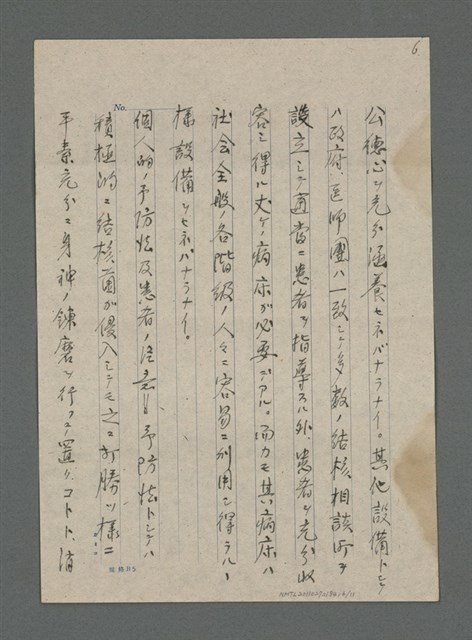 6.
公徳心ヲ充分涵養セネバナラナイ。其他設備トシテ
ハ政府、医師團ハ一致シテ多数ノ結核相談所ヲ
設立シテ適当ニ患者ヲ指導スル外、患者ヲ充分収
容シ得ル丈ケノ病床ガ必要デアル。而カモ其病床ハ
社会全般ノ各階級ノ人々ニ容易ニ利用シ得ラルヽ
様設備ヲセネバナラナイ。
個人的ノ予防法及患者ノ注意 予防法トシテハ
積極的ニ結核菌ガ侵入シテモ之ニ打勝ツ様ニ
平素充分ニ身神ノ錬磨ヲ行フテ置クコトト、消
No.
原稿B5